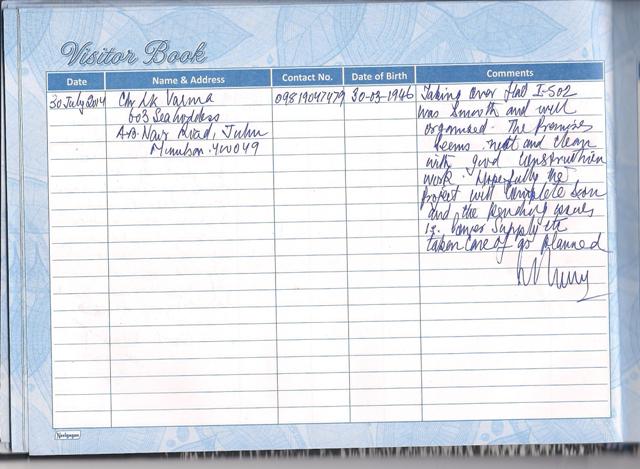 Visitor Book
Date Name & Address Contact No. Date of Birth Comments
30 July 2014 Varma 09819047479 30-03-1946 Taking over flat I-502
603 Sea was smooth and well
A.B. Nair Road, Juhu organised. The Premises
Mumbai. 400049 seems neat and clean
with good construction
work. Hopefully the
Project will complete soon
and the pending issues
Power Supply etc
taken care of as planned
Neelgagan